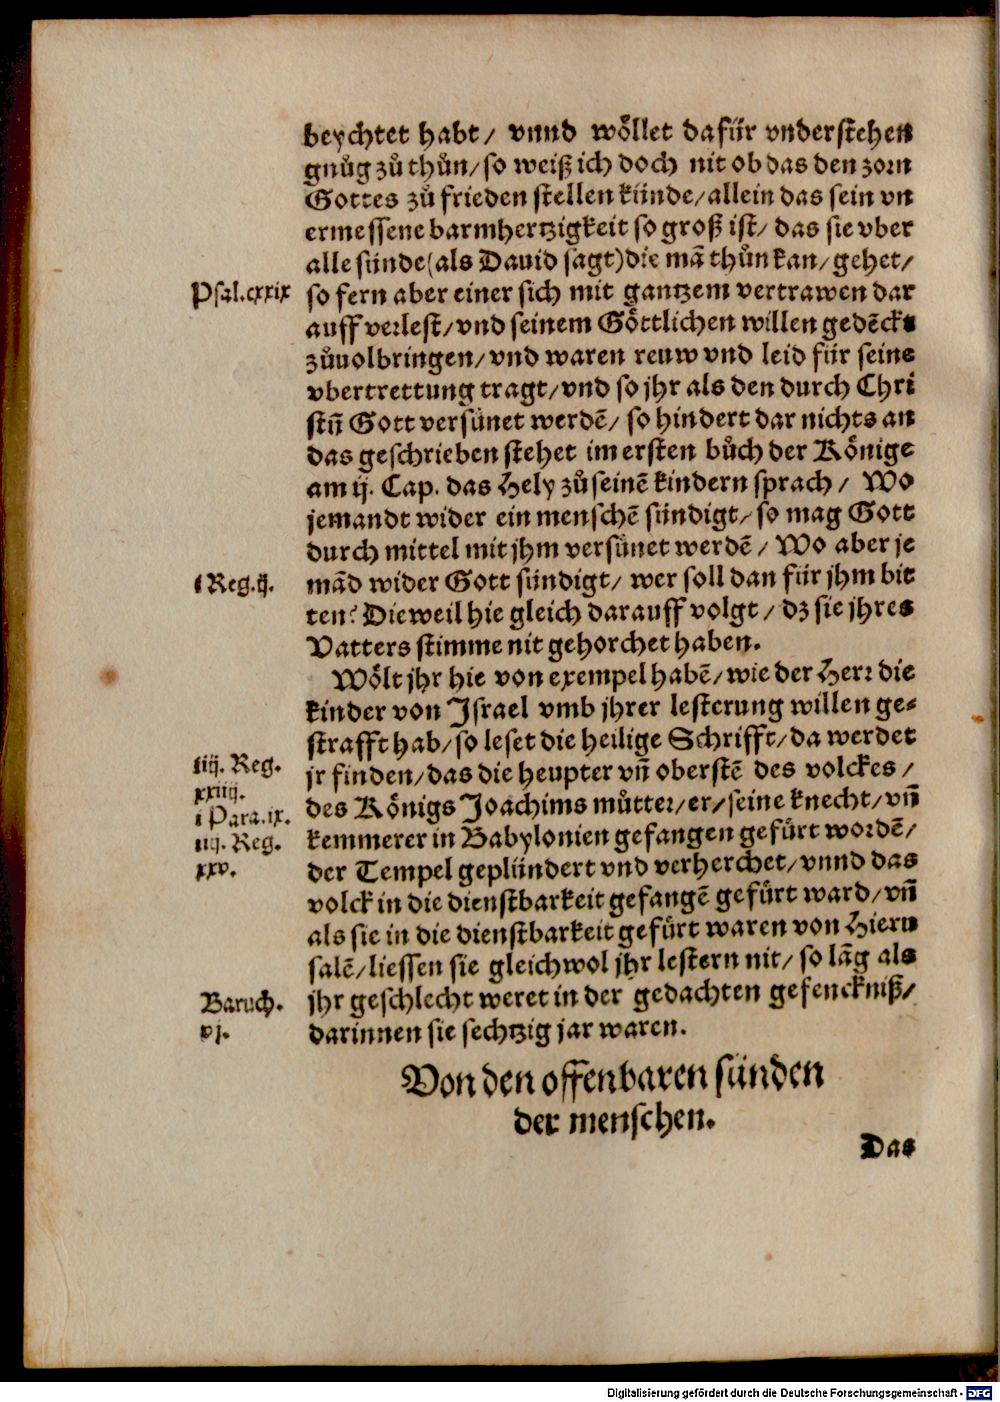 beychtet habt/ vnnd woͤllet dafür vnderstehen
gnuͦg zuͦ thuͦn/ so weiß ich doch nit ob das den zorn
Gottes zuͦ frieden stellen künde/ allein das sein vn
ermessene barmhertzigkeit so groß ist/ das sie vber
alle sünde (als Dauid sagt) die mā thuͦn kan/ gehet/
Psal.cxxix
so fern aber einer sich mit gantzem vertrawen dar
auff verlest/ vnd seinem Goͤttlichen willen gedēckt
zuͦuolbringen/ vnd waren reuw vnd leid für seine
vbertrettung tragt/ vnd so jhr als den durch Chri
stū Gott versuͤnet werdē/ so hindert dar nichts an
das geschrieben stehet im ersten buͦch der Koͤnige
am ij. Cap. das Hely zuͦ seinē kindern sprach/ Wo
jemandt wider ein menschē sündigt/ so mag Gott
durch mittel mit jhm versuͤnet werdē/ Wo aber je
i Reg.ij.
mād wider Gott sündigt/ wer soll dan für jhm bit
ten? Dieweil hie gleich darauff volgt/ dz sie jhres
Vatters stimme nit gehorchet haben.
Woͤlt jhr hie von exempel habē/ wie der Herr die
kinder von Israel vmb jhrer lesterung willen ge-
strafft hab/ so leset die heilige Schrifft/ da werdet
iiij. Reg.
xxiiij.
i Para.ix.
iiij. Reg.
xxv.
jr finden/ das die heupter vn̄ oberstē des volckes/
des Koͤnigs Joachims muͤtter/ er/ seine knecht/ vn̄
kemmerer in Babylonien gefangen gefuͤrt wordē/
der Tempel geplündert vnd verherchet/ vnnd das
volck in die dienstbarkeit gefangē gefuͤrt ward/ vn̄
als sie in die dienstbarkeit gefuͤrt waren von Hieru
salē/ liessen sie gleichwol jhr lestern nit/ so lāg als
Baruch.
vj.
jhr geschlecht weret in der gedachten gefenckniß/
darinnen sie sechtzig jar waren.
Von den offenbaren sünden
der menschen.
Das
Digitalisierung gefördert durch die Deutsche Forschungsgemeinschaft - DFG